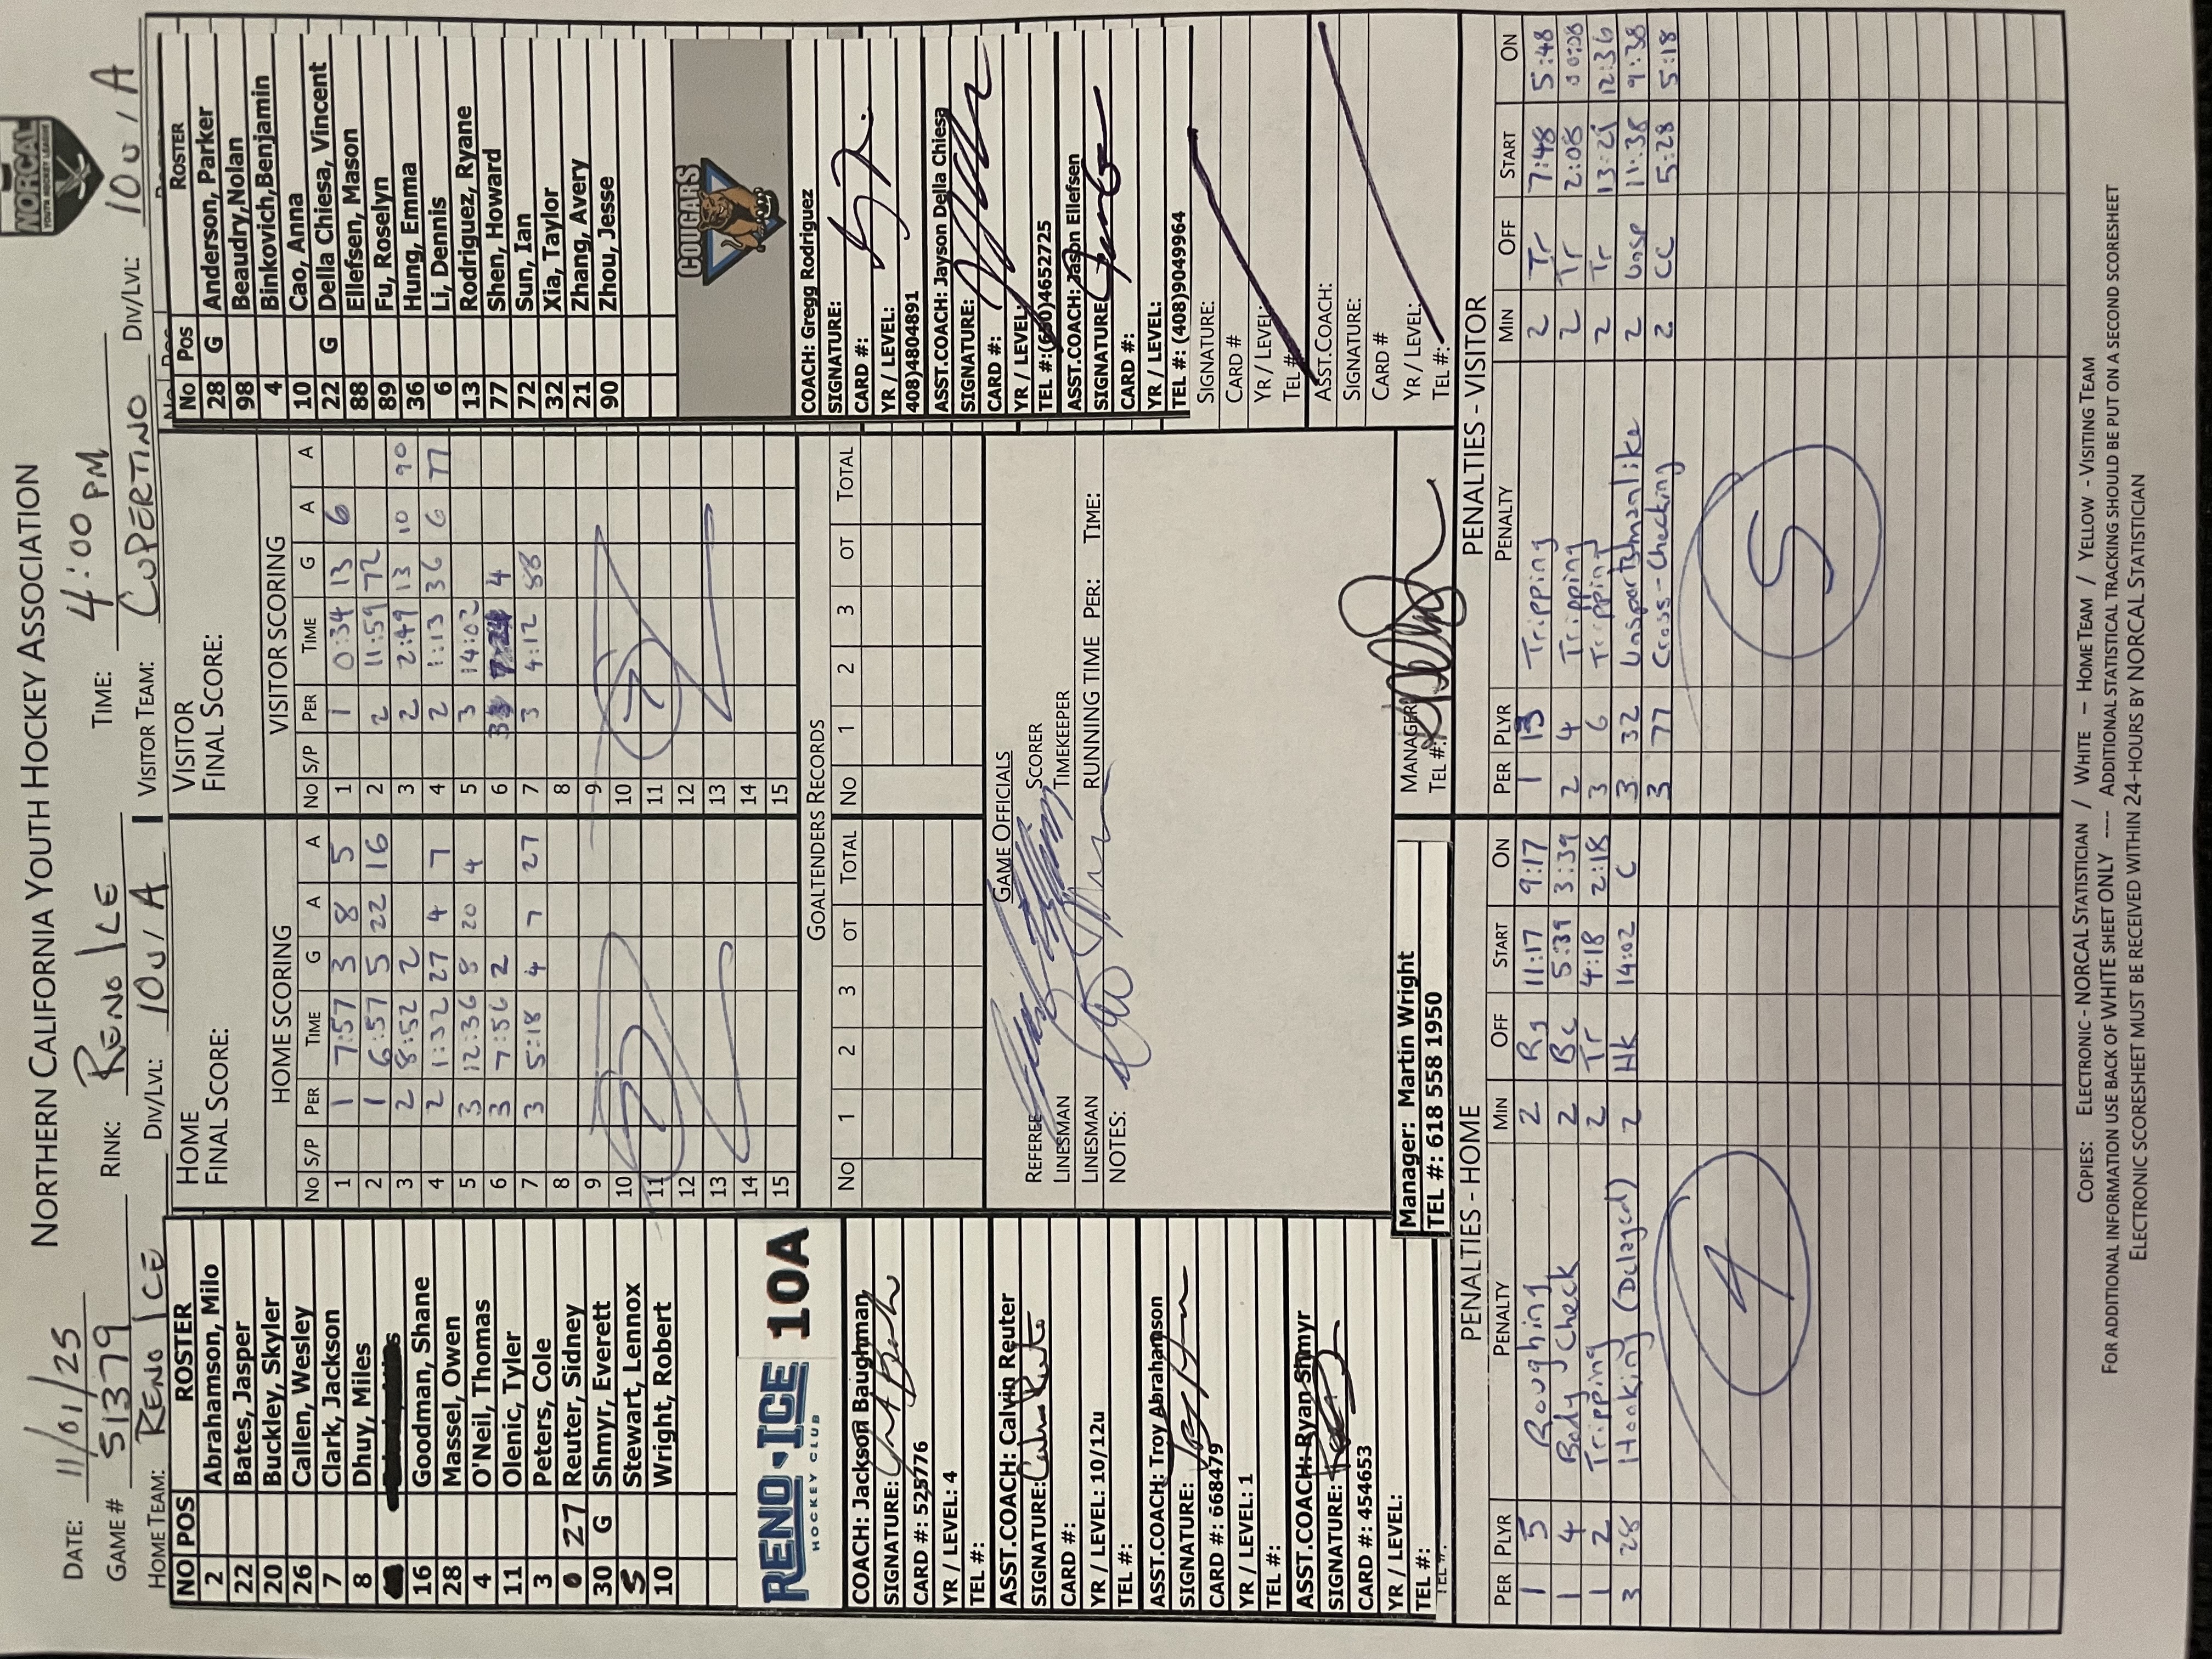 NORCAL
YOUTH HOCKEY LEAGUE
NORTHERN CALIFORNIA YOUTH HOCKEY ASSOCIATION
DATE: 11/01/25
GAME # 51379 RINK: RENO ICE TIME: 4:00 PM
HOME TEAM: RENO ICE DIV/LVL: 10U/A VISITOR TEAM: CUPERTINO DIV/LVL: 10U/A
NO POS ROSTER
2 Abrahamson, Milo
22 Bates, Jasper
20 Buckley, Skyler
26 Callen, Wesley
7 Clark, Jackson
8 Dhuy, Miles
16 Goodman, Shane
28 Massel, Owen
4 O'Neil, Thomas
11 Olenic, Tyler
3 Peters, Cole
27 Reuter, Sidney
30 G Shmyr, Everett
5 Stewart, Lennox
10 Wright, Robert
RENO ICE 10A
HOCKEY CLUB
COACH: Jackson Baughman
SIGNATURE:
CARD #: 525776
YR / LEVEL: 4
TEL #:
ASST.COACH: Calvin Reuter
SIGNATURE:
CARD #:
YR / LEVEL: 10/12u
TEL #:
ASST.COACH: Troy Abrahamson
SIGNATURE:
CARD #: 668479
YR / LEVEL: 1
TEL #:
ASST.COACH: Ryan Shmyr
SIGNATURE:
CARD #: 454653
YR / LEVEL:
TEL #:
TEL #:
HOME
FINAL SCORE:
HOME SCORING
No S/P PER TIME G A A
1 1 7:57 3 8 5
2 1 6:57 5 22 16
3 2 8:52 2
4 2 1:32 27 4 7
5 3 12:36 8 20 4
6 3 7:56 2
7 3 5:18 4 7 27
8
9
10
11
12
13
14
15
7
VISITOR
FINAL SCORE:
VISITOR SCORING
No S/P PER TIME G A A
1 1 0:34 13 6
2 2 11:59 72
3 2 2:49 13 10 90
4 2 1:13 36 6 77
5 3 14:02
6 3 4
7 3 4:12 88
8
9
10
11
12
13
14
15
7
GOALTENDERS RECORDS
No 1 2 3 OT TOTAL No 1 2 3 OT TOTAL
GAME OFFICIALS
REFEREE SCORER
LINESMAN TIMEKEEPER
LINESMAN RUNNING TIME PER: TIME:
NOTES:
Manager: Martin Wright
TEL #: 618 558 1950
MANAGER:
TEL #:
No Pos ROSTER
28 G Anderson, Parker
98 Beaudry,Nolan
4 Binkovich,Benjamin
10 Cao, Anna
22 G Della Chiesa, Vincent
88 Ellefsen, Mason
89 Fu, Roselyn
36 Hung, Emma
6 Li, Dennis
13 Rodriguez, Ryane
77 Shen, Howard
72 Sun, Ian
32 Xia, Taylor
21 Zhang, Avery
90 Zhou, Jesse
COUGARS
COACH: Gregg Rodriguez
SIGNATURE:
CARD #:
YR / LEVEL:
408)4804891
ASST.COACH: Jayson Della Chiesa
SIGNATURE:
CARD #:
YR / LEVEL:
TEL #:(650)4652725
ASST.COACH: Jason Ellefsen
SIGNATURE:
CARD #:
YR / LEVEL:
TEL #: (408)9049964
SIGNATURE:
CARD #
YR / LEVEL:
TEL #:
ASST.COACH:
SIGNATURE:
CARD #
YR / LEVEL:
TEL #:
PENALTIES - HOME
PER PLYR PENALTY MIN OFF START ON
1 5 Roughing 2 Rg 11:17 9:17
1 4 Body Check 2 Bc 5:39 3:39
1 2 Tripping 2 Tr 4:18 2:18
3 28 Hooking (Delayed) 2 Hk 14:02 C
4
PENALTIES - VISITOR
PER PLYR PENALTY MIN OFF START ON
1 13 Tripping 2 Tr 7:48 5:48
2 4 Tripping 2 Tr 2:08 00:08
3 6 Tripping 2 Tr 13:21 12:36
3 32 Unsportsmanlike 2 Unsp 11:38 9:38
3 77 Cross-Checking 2 CC 5:28 5:18
5
COPIES: ELECTRONIC - NORCAL STATISTICIAN / WHITE - HOME TEAM / YELLOW - VISITING TEAM
FOR ADDITIONAL INFORMATION USE BACK OF WHITE SHEET ONLY ---- ADDITIONAL STATISTICAL TRACKING SHOULD BE PUT ON A SECOND SCORESHEET
ELECTRONIC SCORESHEET MUST BE RECEIVED WITHIN 24-HOURS BY NORCAL STATISTICIAN